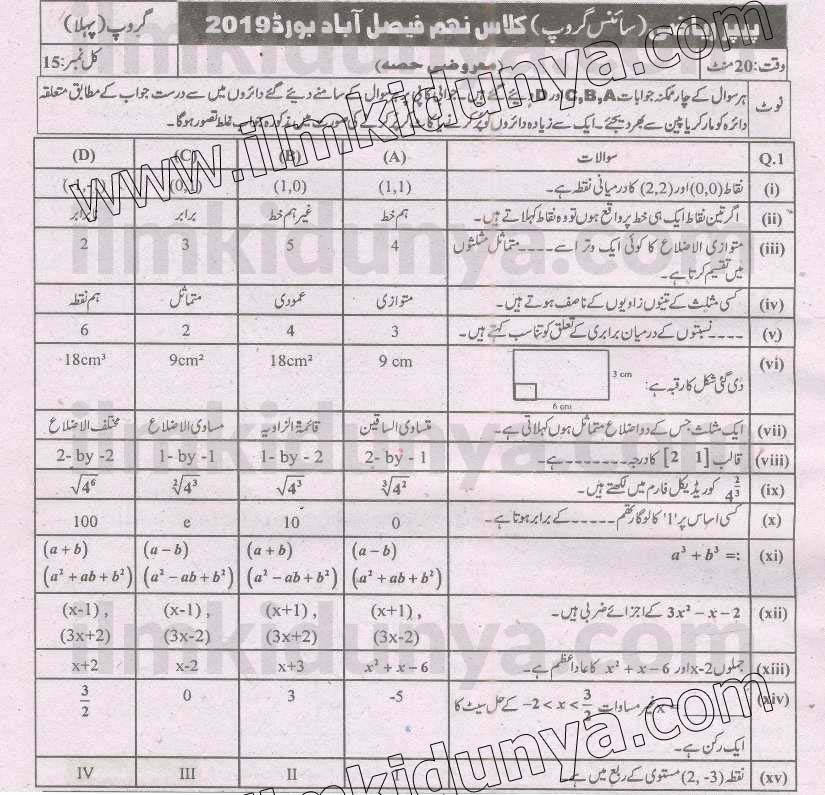 پیپر ریاضی (سائنس گروپ) کلاس نہم فیصل آباد بورڈ 2019 گروپ (پہلا)
وقت: 20 منٹ (معروضی حصہ) کل نمبر: 15
نوٹ ہر سوال کے چار ممکنہ جوابات A,B,C اور D دیئے گئے ہیں۔ جوابی کاپی پر ہر سوال کے سامنے دیئے گئے دائروں میں سے درست جواب کے مطابق متعلقہ
دائرہ کو مارکر یا پین سے بھر دیجئے۔ ایک سے زیادہ دائروں کو پُر کرنے یا کاٹ کر پُر کرنے کی صورت میں مذکورہ جواب غلط تصور ہوگا۔
Q.1 سوالات (A) (B) (C) (D)
(i) نقاط (0,0) اور (2,2) کا درمیانی نقطہ ہے۔ (1,1) (1,0) (0,1) (-1,-1)
(ii) اگر تین نقاط ایک ہی خط پر واقع ہوں تو وہ نقاط کہلاتے ہیں۔ ہم خط غیر ہم خط برابر
(iii) متوازی الاضلاع کا کوئی ایک وتر اسے ---- متماثل مثلثوں 4 5 3 2
میں تقسیم کرتا ہے۔
(iv) کسی مثلث کے تینوں زاویوں کے ناصف ہوتے ہیں۔ متوازی عمودی متماثل ہم نقطہ
(v) ---- نسبتوں کے درمیان برابری کے تعلق کو تناسب کہتے ہیں۔ 3 4 2 6
(vi) دی گئی شکل کا رقبہ ہے: 3 cm 6 cm 9 cm 18cm² 9cm² 18cm³
(vii) ایک مثلث جس کے دو اضلاع متماثل ہوں کہلاتی ہے۔ متساوی الساقین قائمۃ الزاویہ مساوی الاضلاع مختلف الاضلاع
(viii) قالب [2 1] کا درجہ ------- ہے۔ 2- by - 1 1- by - 2 1- by -1 2- by -2
(ix) 4^(2/3) کو ریڈیکل فارم میں لکھتے ہیں۔ ∛4² √4³ ²√4³ √4⁶
(x) کسی اساس پر '1' کا لوگارتھم ----- کے برابر ہوتا ہے۔ 0 10 e 100
(xi) a³ + b³ =: (a − b) (a + b) (a − b) (a + b)
(a² + ab + b²) (a² − ab + b²) (a² − ab + b²) (a² + ab + b²)
(xii) 3x² − x − 2 کے اجزائے ضربی ہیں۔ (x+1) , (x+1) , (x-1) , (x-1) ,
(3x-2) (3x+2) (3x-2) (3x+2)
(xiii) جملوں x-2 اور x² + x − 6 کا عاد اعظم ہے۔ x² + x − 6 x+3 x-2 x+2
(xiv) غیر مساوات −2 < x < 3/2 کے حل سیٹ کا -5 3 0 3/2
ایک رکن ہے۔
(xv) نقطہ (2, -3) مستوی کے ربع میں ہے۔ II III IV
www.ilmkidunya.com
www.ilmkidunya.com
ilmkidunya.com
ilmkidunya.com
ilmkidunya.com